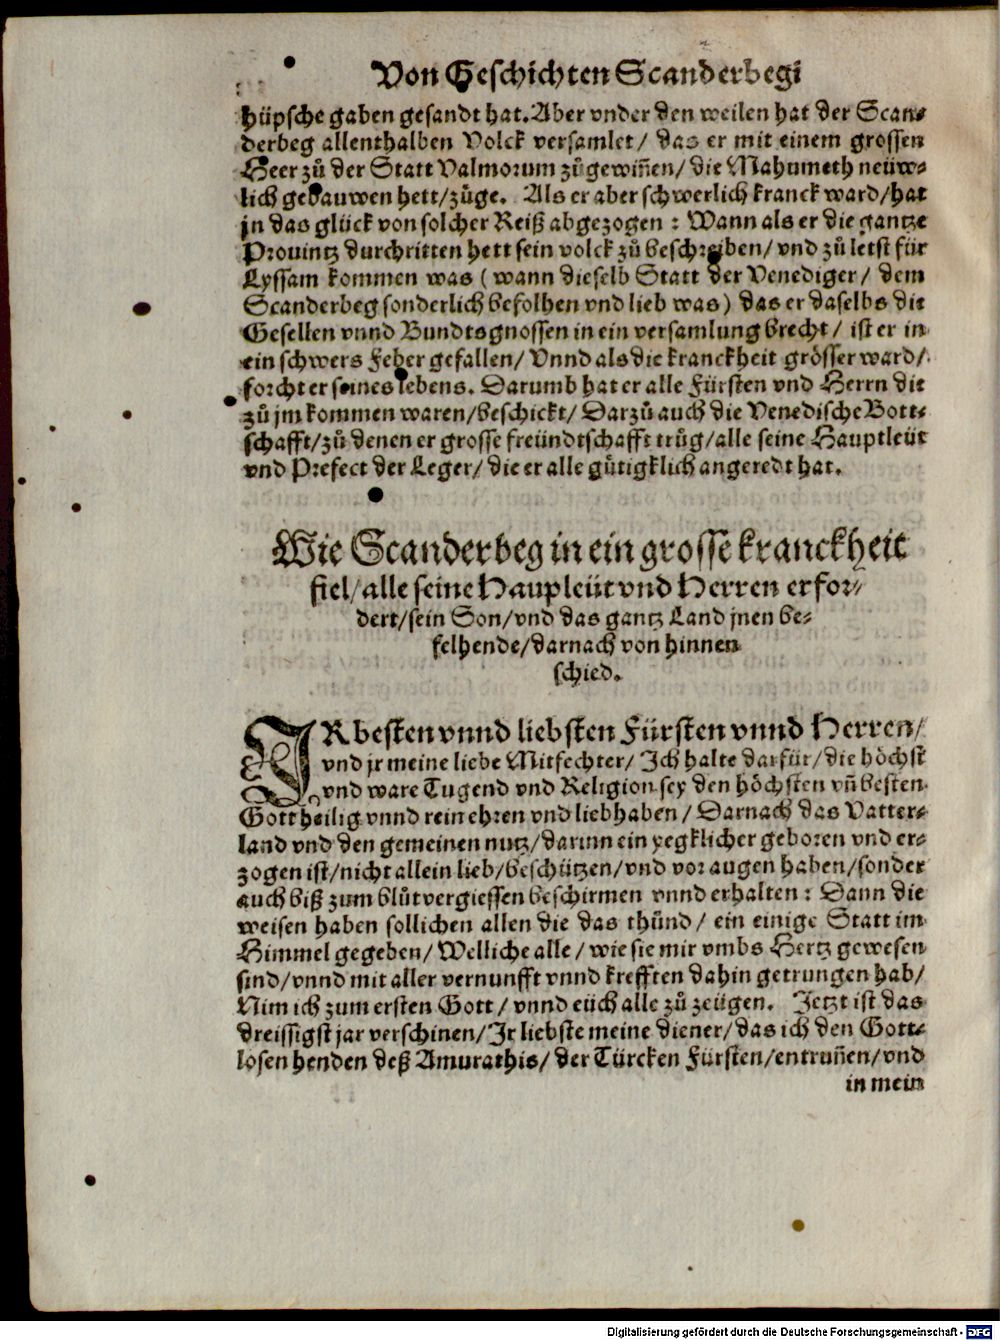 Von Geschichten Scanderbegi
hüpsche gaben gesandt hat. Aber vnder den weilen hat der Scan⸗
derbeg allenthalben Volck versamlet / das er mit einem grossen
Heer zů der Statt Valmorum zů gewiñen / die Mahumeth neüw⸗
lich gebauwen hett / züge. Als er aber schwerlich kranck ward / hat
jn das glück von solcher Reiß abgezogen : Wann als er die gantze
Prouintz durchritten hett sein volck zů beschreiben / vnd zů letst für
Lyssam kommen was ( wann dieselb Statt der Venediger / dem
Scanderbeg sonderlich befolhen vnd lieb was ) das er daselbs die
Gesellen vnnd Bundtsgnossen in ein versamlung brecht / ist er in
ein schwers Feber gefallen / Vnnd als die kranckheit grösser ward /
forcht er seines lebens. Darumb hat er alle Fürsten vnd Herrn die
zů jm kommen waren / beschickt / Darzů auch die Venedische Bott⸗
schafft / zů denen er grosse freündtschafft trůg / alle seine Hauptleüt
vnd Prefect der Leger / die er alle gütigklich angeredt hat.
Wie Scanderbeg in ein grosse kranckheit
fiel / alle seine Haupleüt vnd Herren erfor⸗
dert / sein Son / vnd das gantz Land jnen be⸗
felhende / darnach von hinnen
schied.
IR besten vnnd liebsten Fürsten vnnd Herren /
vnd jr meine liebe Mitfechter / Ich halte darfür / die höchst
vnd ware Tugend vnd Religion sey den höchsten vñ besten
Gott heilig vnnd rein ehren vnd liebhaben / Darnach das Vatter⸗
land vnd den gemeinen nutz / darinn ein yegklicher geboren vnd er⸗
zogen ist / nicht allein lieb / beschützen / vnd vor augen haben / sonder
auch biß zum blůtvergiessen beschirmen vnnd erhalten : Dann die
weisen haben sollichen allen die das thünd / ein einige Statt im
Himmel gegeben / Welliche alle / wie sie mir vmbs Hertz gewesen
sind / vnnd mit aller vernunfft vnnd krefften dahin getrungen hab /
Nim ich zum ersten Gott / vnnd eüch alle zů zeügen. Jetzt ist das
dreissigst jar verschinen / Ir liebste meine diener / das ich den Gott⸗
losen henden deß Amurathis / der Türcken Fürsten / entruñen / vnd
in mein
Digitalisierung gefördert durch die Deutsche Forschungsgemeinschaft - DFG